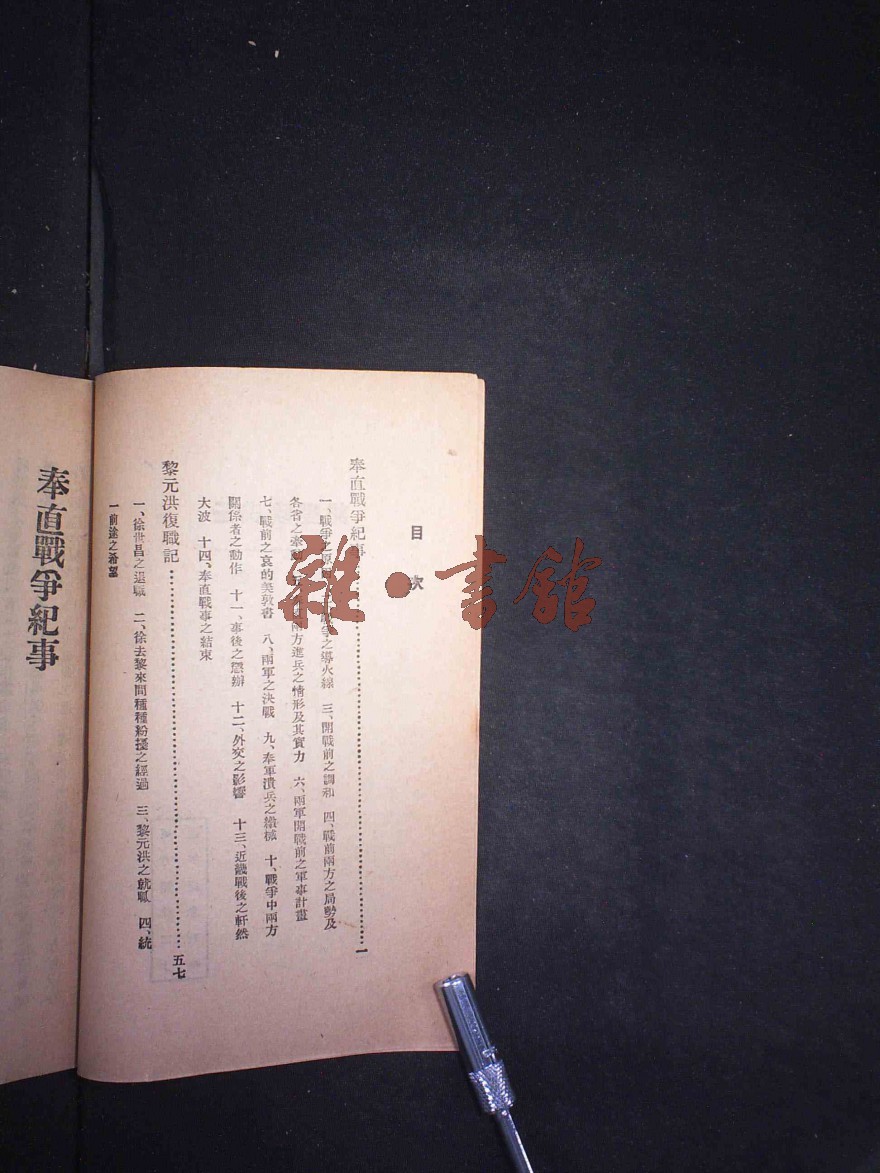 目次
奉直戰爭紀事 一
一、戰爭之原 戰爭之導火線 三、開戰前之調和 四、戰前兩方之局勢及
各省之牽 兩方進兵之情形及其實力 六、兩軍開戰前之軍事計畫
七、戰前之哀的美敦書 八、兩軍之決戰 九、奉軍潰兵之繳械 十、戰爭中兩方
關係者之動作 十一、事後之懲辦 十二、外交之影響 十三、近畿戰後之軒然
大波 十四、奉直戰事之結束
黎元洪復職記 五七
一、徐世昌之退職 二、徐去黎來間種種紛擾之經過 三、黎元洪之就職 四、統
一前途之希望
奉直戰爭紀事
雜·書館